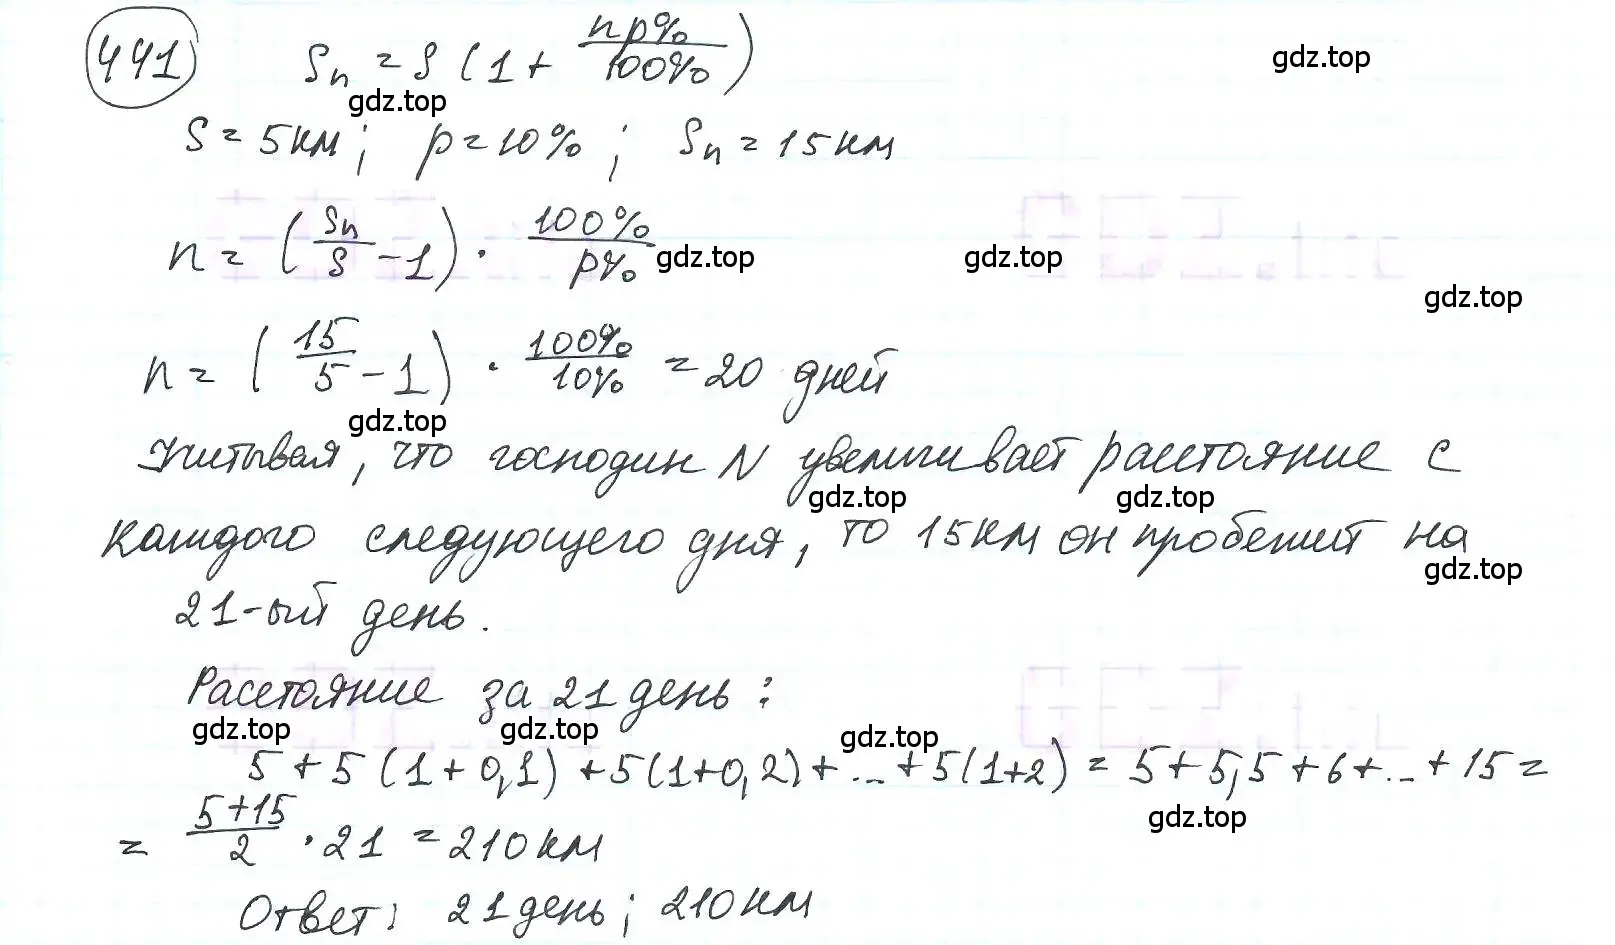 441 Sₙ = S (1 + np%/100%)
gdz.top
gdz.top
S = 5км; p = 10%; Sₙ = 15км
n = (Sₙ/S - 1) · 100%/p%
gdz.top gdz.top
gdz.top
n = (15/5 - 1) · 100%/10% = 20 дней
gdz.top
Учитывая, что господин N увеличивает расстояние с
gdz.top gdz.top
каждого следующего дня, то 15км он пробежит на
gdz.top
21-ый день.
Расстояние за 21 день:
gdz.top gdz.top gdz.top
5 + 5 (1 + 0,1) + 5(1+0,2) + ... + 5(1+2) = 5 + 5,5 + 6 + ... + 15 =
gdz.top
= (5+15)/2 · 21 = 210 км
Ответ: 21 день; 210 км